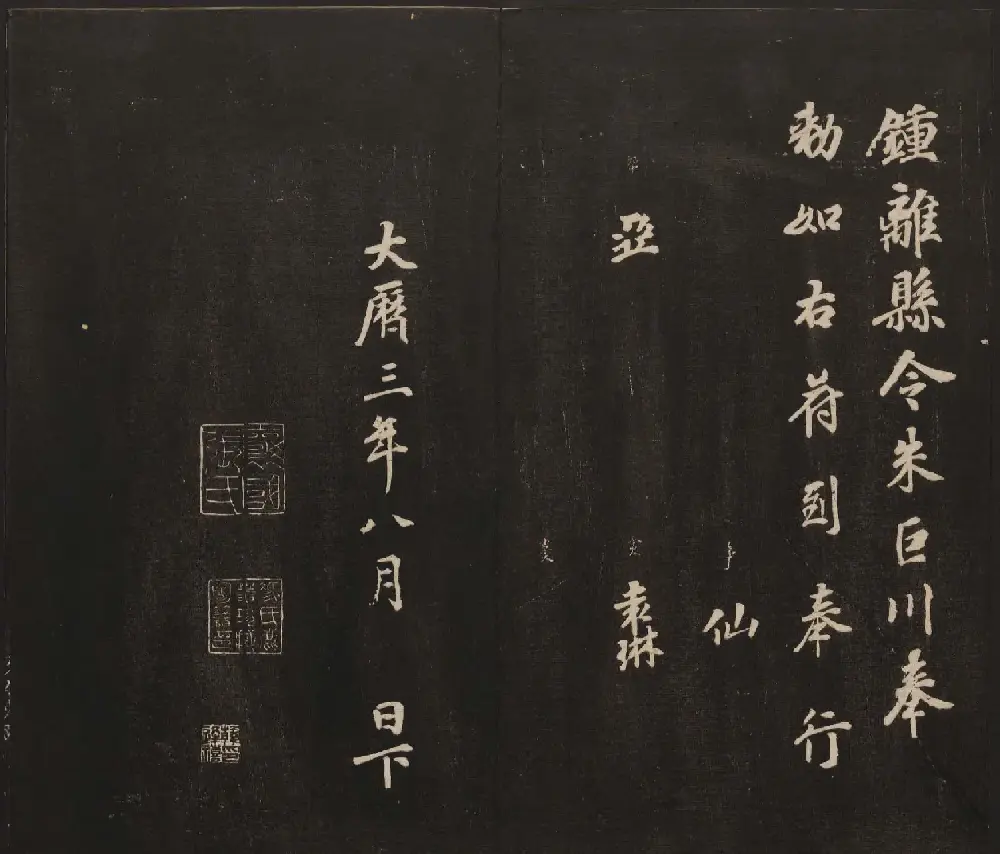 鍾離縣令朱巨川奉
敕如右符到奉行
仙
亞
袁琳
大曆三年八月 日下